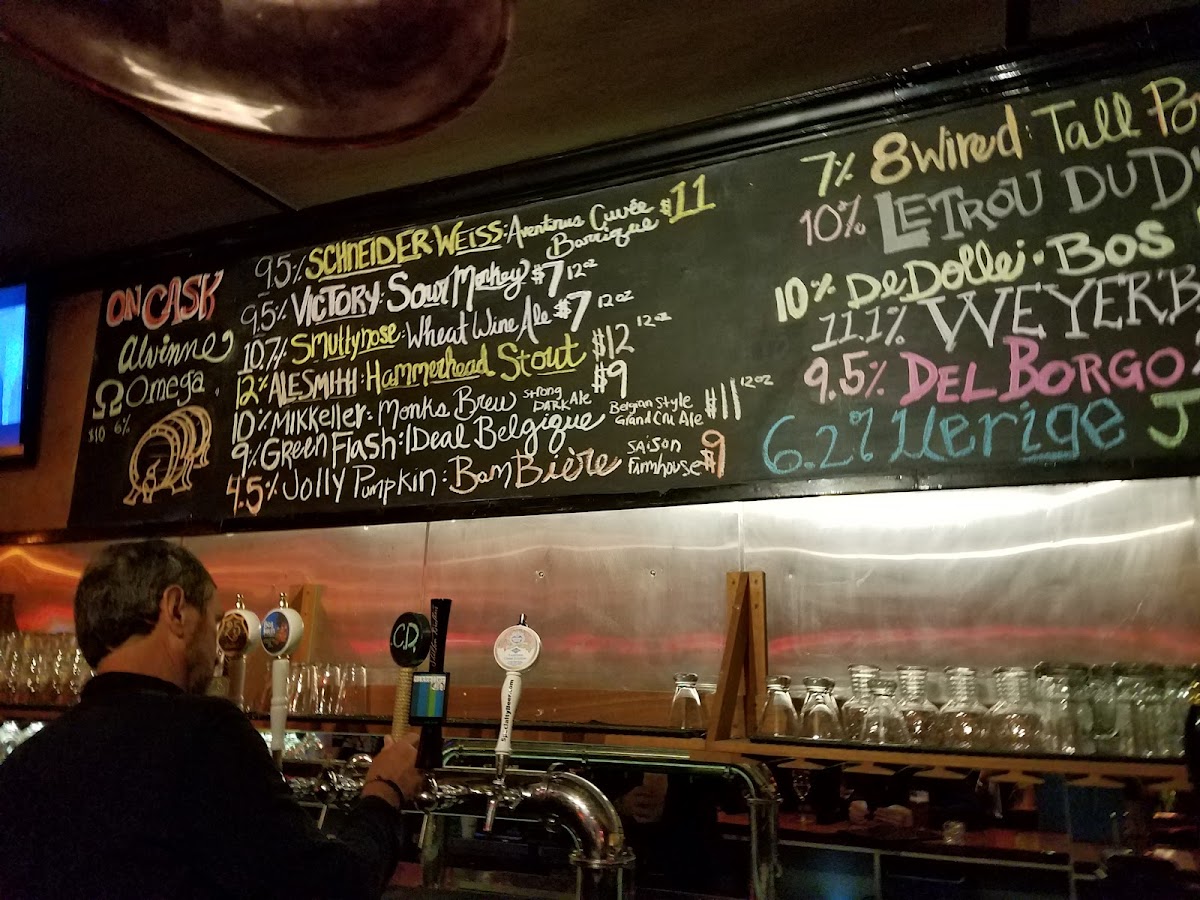 ON CASK
Alvinne
Ω Omega
$10 6%
9.5% SCHNEIDER WEISS: Aventinus Cuvée Barrique $11
9.5% VICTORY: Sour Monkey $7 12oz
10.7% Smuttynose: Wheat Wine Ale $7 12oz
12% ALESMITH: Hammerhead Stout $12 12oz
10% MIKKELLER: Monks Brew STRONG DARK Ale $9
9% GREEN FLASH: IDeal Belgique Belgian Style Grand Cru Ale $11 12oz
4.5% Jolly Pumpkin: Bam Bière SAISON Farmhouse $9
7% 8 Wired: Tall Po
10% LETROU DU D
10% DeDolle: BOS
11.1% WEYERB
9.5% DEL BORGO
6.2% Uerige J
C.D.
SpecialtyBeer.com